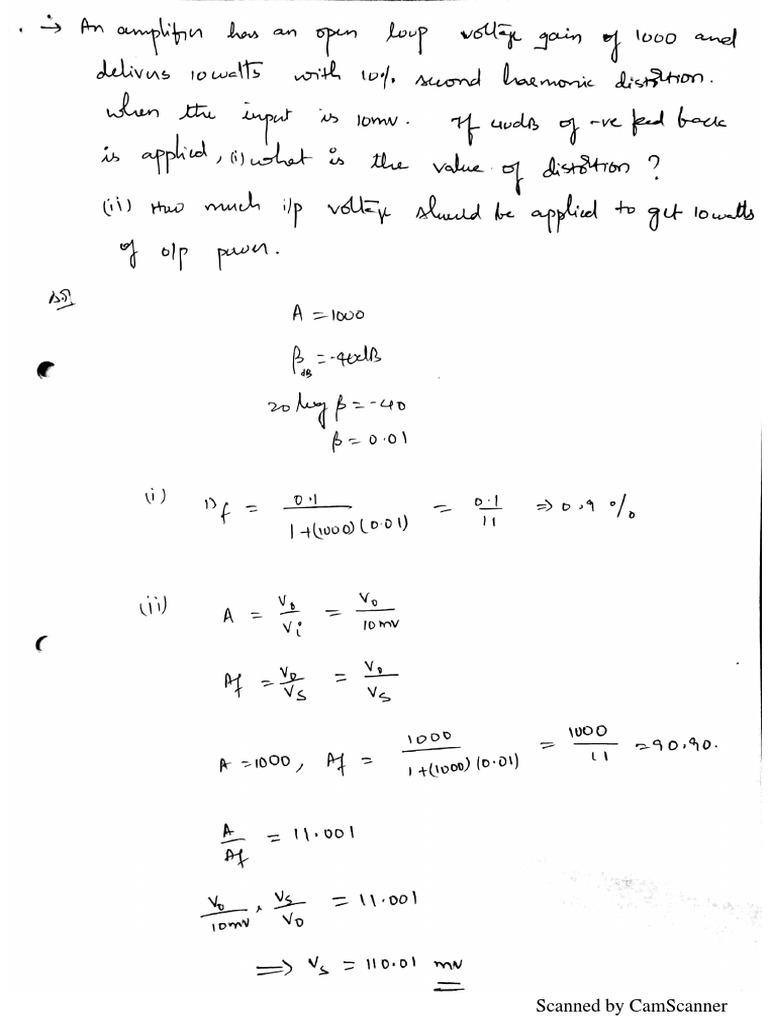 . ∴→ An amplifier has an open loop voltage gain of 1000 and
delivers 10watts with 10% second harmonic distortion.
when the input is 10mv. If 40dB of -ve feed back
is applied, (i) what is the value of distortion ?
(ii) How much i/p voltage should be applied to get 10watts
of o/p power.
Sol
A = 1000
β dB = -40dB
20 log β = -40
β = 0.01
(i) Df = 0.1 / 1+(1000)(0.01) = 0.1 / 11 ⇒ 0.9 %
(ii) A = Vo / Vi = Vo / 10mv
Af = Vo / Vs = Vo / Vs
A = 1000, Af = 1000 / 1+(1000)(0.01) = 1000 / 11 = 90.90.
A / Af = 11.001
Vo / 10mv × Vs / Vo = 11.001
⇒ Vs = 110.01 mv
Scanned by CamScanner